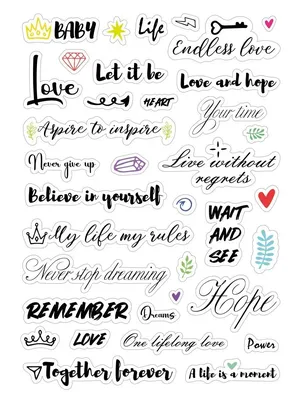 BABY
Life
Endless love
Love
Let it be
Love and hope
HEART
Your time
Aspire to inspire
Never give up
Live without
regrets
Believe in yourself
WAIT
AND
SEE
My life my rules
Never stop dreaming
Hope
REMEMBER
Dreams
LOVE
One lifelong love
Power
Together forever
A life is a moment